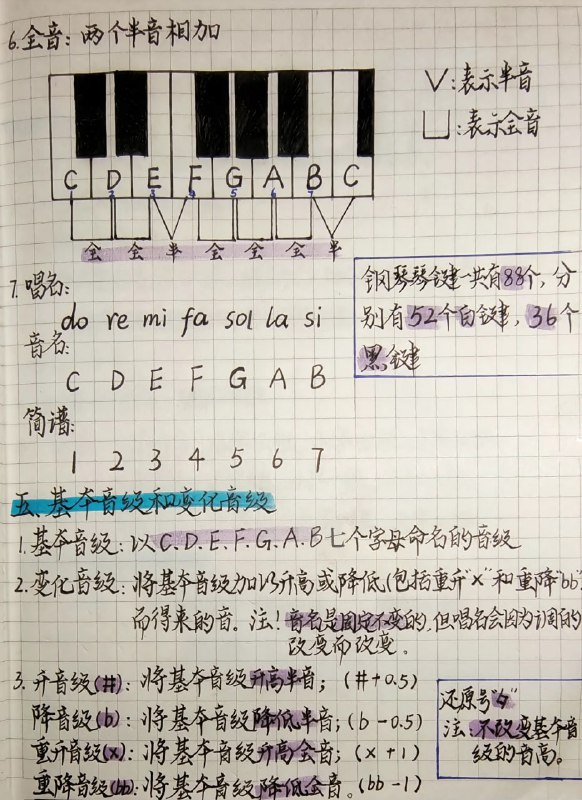 6.全音：两个半音相加
V:表示半音
凵:表示全音
C D E F G A B C
1 2 3 4 5 6 7
全 全 半 全 全 全 半
7.唱名：
do re mi fa sol la si
音名：
C D E F G A B
简谱：
1 2 3 4 5 6 7
钢琴琴键一共有88个，分
别有52个白键，36个
黑键
五、基本音级和变化音级
1.基本音级：以C.D.E.F.G.A.B七个字母命名的音级
2.变化音级：将基本音级加以升高或降低(包括重升"x"和重降"bb"
而得来的音。注！音名是固定不变的，但唱名会因为调的
改变而改变。
3.升音级(#)：将基本音级升高半音；(#+0.5)
降音级(b)：将基本音级降低半音；(b-0.5)
重升音级(x)：将基本音级升高全音；(x+1)
重降音级(bb)：将基本音级降低全音。(bb-1)
还原号"♮"
注：不改变基本音
级的音高。